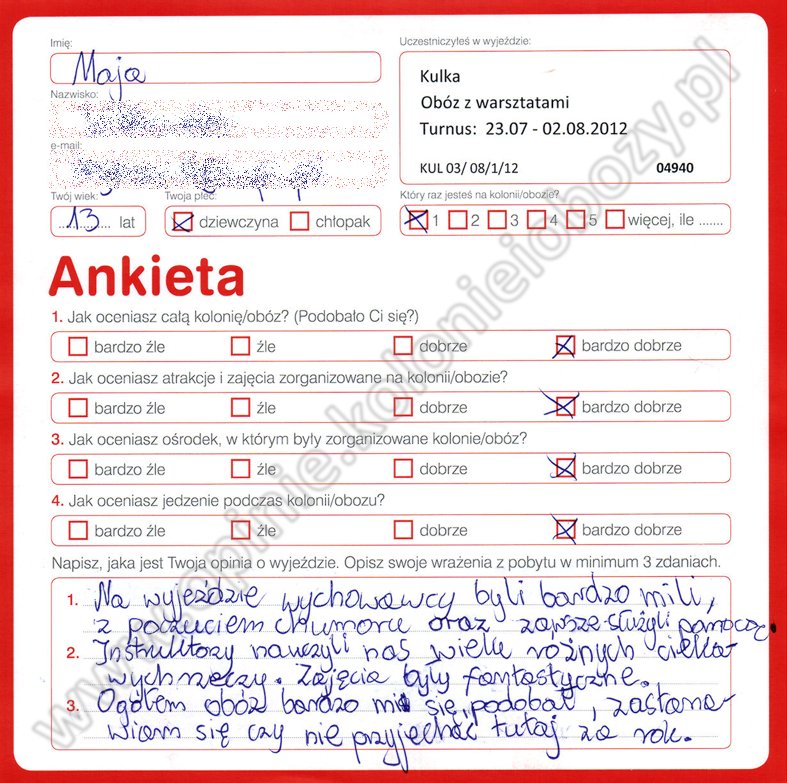 Imię:
Maja
Nazwisko:
e-mail:
Twój wiek:
13 lat
Twoja płeć:
dziewczyna chłopak
Uczestniczyłeś w wyjeździe:
Kulka
Obóz z warsztatami
Turnus: 23.07 - 02.08.2012
KUL 03/ 08/1/12 04940
Który raz jesteś na kolonii/obozie?
1 2 3 4 5 więcej, ile .......
Ankieta
1. Jak oceniasz całą kolonię/obóz? (Podobało Ci się?)
bardzo źle źle dobrze bardzo dobrze
2. Jak oceniasz atrakcje i zajęcia zorganizowane na kolonii/obozie?
bardzo źle źle dobrze bardzo dobrze
3. Jak oceniasz ośrodek, w którym były zorganizowane kolonie/obóz?
bardzo źle źle dobrze bardzo dobrze
4. Jak oceniasz jedzenie podczas kolonii/obozu?
bardzo źle źle dobrze bardzo dobrze
Napisz, jaka jest Twoja opinia o wyjeździe. Opisz swoje wrażenia z pobytu w minimum 3 zdaniach.
1. Na wyjeździe wychowawcy byli bardzo mili,
z poczuciem chumoru oraz zawsze służyli pomocą.
2. Instruktorzy nauczyli nas wielu rożnych cieka-
wych rzeczy. Zajęcia były fantastyczne.
3. Ogółem obóz bardzo mi się podobał, zastana-
wiam się czy nie przyjechać tutaj za rok.
www.opinie.kolonieiobozy.pl